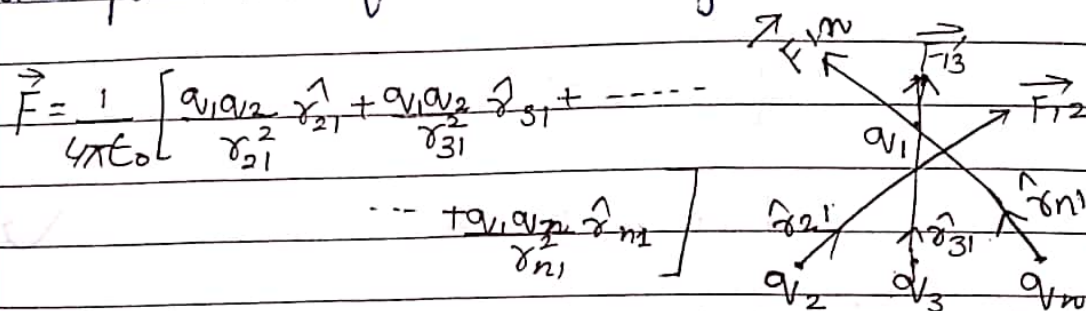 F⃗ = 1/4πϵ₀ [ q₁q₂/r₂₁² r̂₂₁ + q₁q₂/r₃₁² r̂₃₁ + -----
--- + q₁qₙ/rₙ₁² r̂ₙ₁ ]
F⃗₁ₙ
F⃗₁₃
F⃗₁₂
q₁
r̂₂₁
r̂₃₁
r̂ₙ₁
q₂
q₃
qₙ